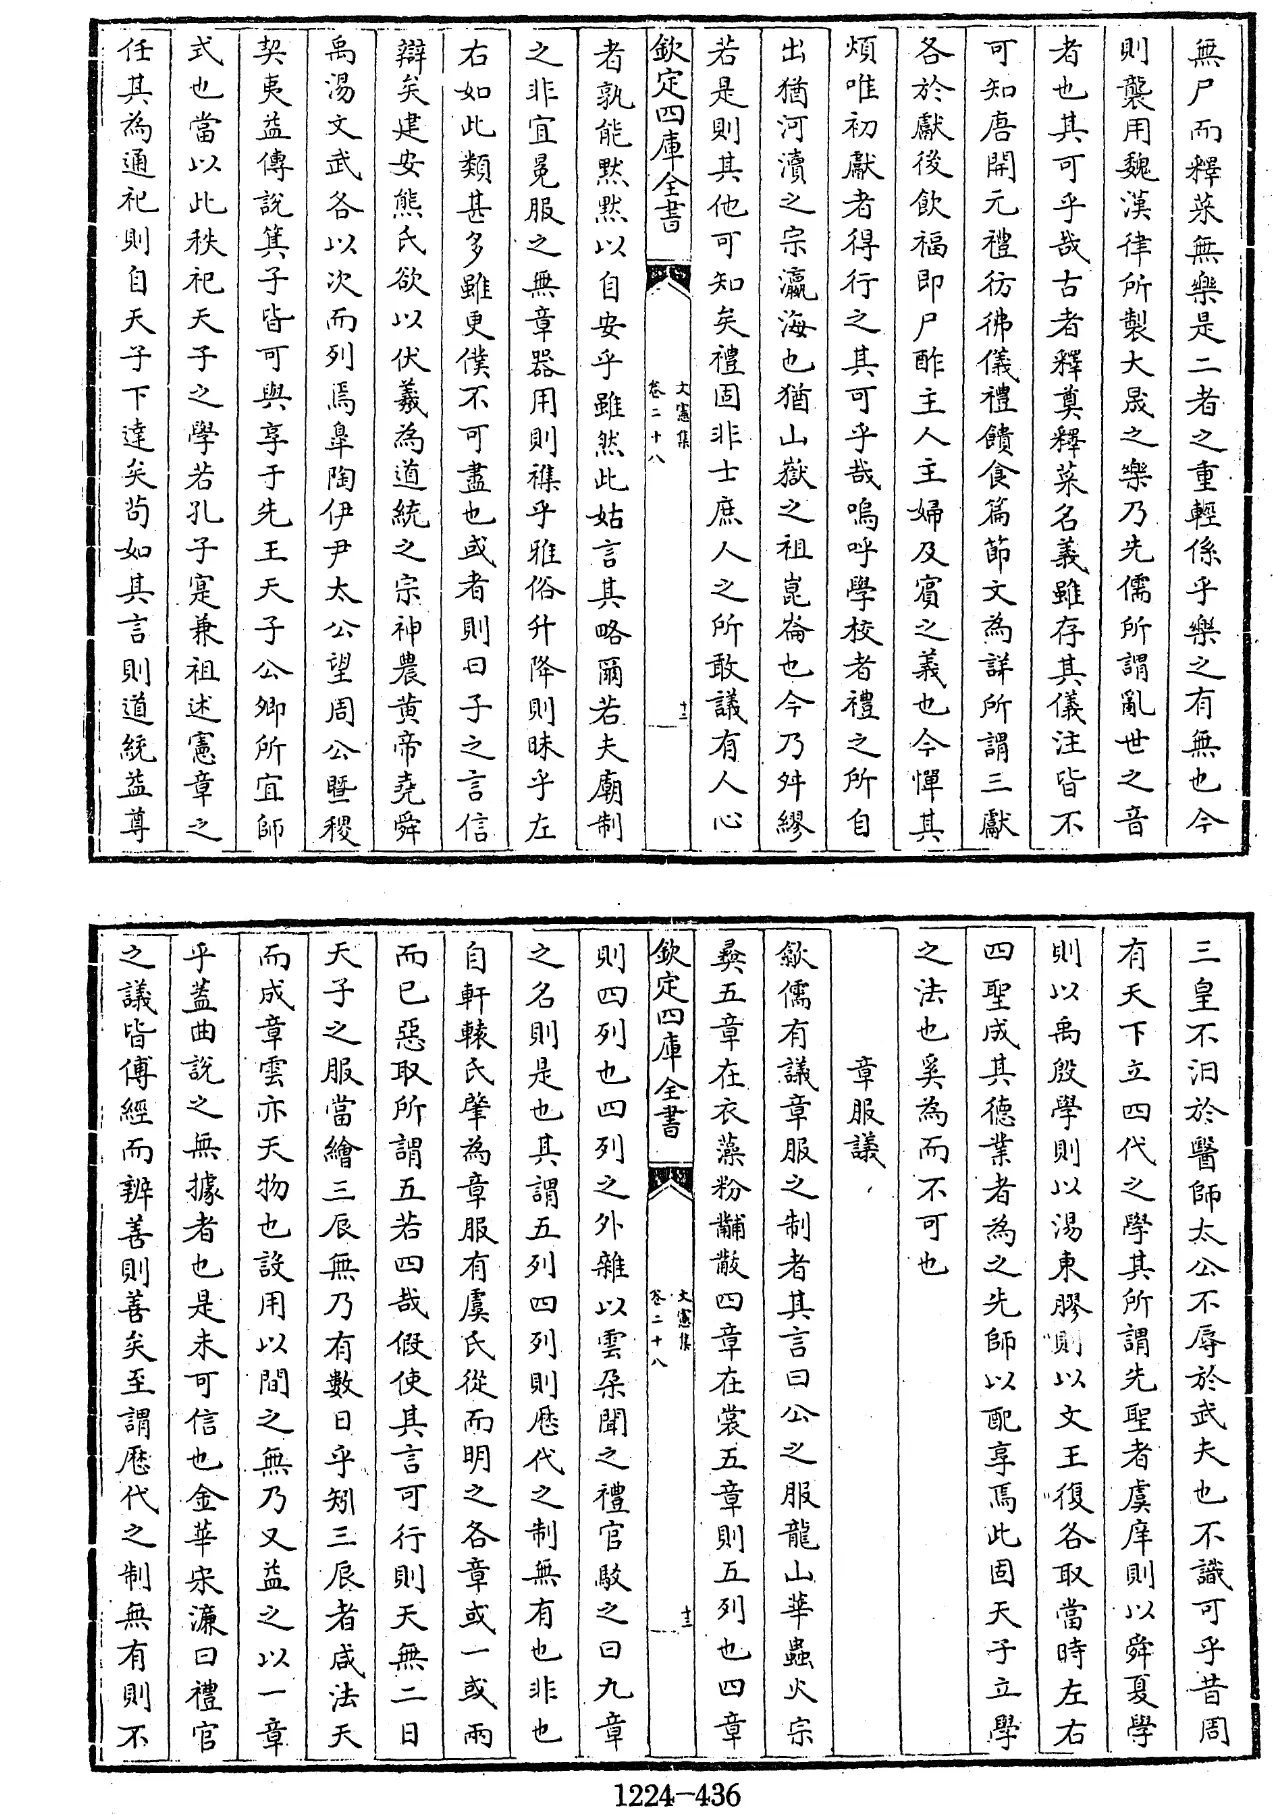 無尸而釋菜無樂是二者之重輕係乎樂之有無也今
則襲用魏漢律所製大晟之樂乃先儒所謂亂世之音
者也其可乎哉古者釋奠釋菜名義雖存其儀注皆不
可知唐開元禮彷彿儀禮饋食篇節文為詳所謂三獻
各於獻後飲福即尸酢主人主婦及賓之義也今憚其
煩唯初獻者得行之其可乎哉嗚呼學校者禮之所自
出猶河瀆之宗瀛海也猶山嶽之祖崑崙也今乃舛繆
若是則其他可知矣禮固非士庶人之所敢議有人心
欽定四庫全書
文憲集
卷二十八
十二
者孰能黙黙以自安乎雖然此姑言其略爾若夫廟制
之非宜冕服之無章器用則襍乎雅俗升降則昧乎左
右如此類甚多雖更僕不可盡也或者則曰子之言信
辯矣建安熊氏欲以伏羲為道統之宗神農黄帝堯舜
禹湯文武各以次而列焉臯陶伊尹太公望周公曁稷
契夷益傅說箕子皆可與享于先王天子公卿所宜師
式也當以此秩祀天子之學若孔子寔兼祖述憲章之
任其為通祀則自天子下達矣茍如其言則道統益尊
三皇不汩於醫師太公不辱於武夫也不識可乎昔周
有天下立四代之學其所謂先聖者虞庠則以舜夏學
則以禹殷學則以湯東膠則以文王復各取當時左右
四聖成其德業者為之先師以配享焉此固天子立學
之法也奚為而不可也
章服議
歙儒有議章服之制者其言曰公之服龍山華蟲火宗
彛五章在衣藻粉黼黻四章在裳五章則五列也四章
欽定四庫全書
文憲集
卷二十八
十三
則四列也四列之外雜以雲朶聞之禮官駁之曰九章
之名則是也其謂五列四列則歴代之制無有也非也
自軒轅氏肇為章服有虞氏從而明之各章或一或兩
而已惡取所謂五若四哉假使其言可行則天無二日
天子之服當繪三辰無乃有數日乎矧三辰者咸法天
而成章雲亦天物也設用以間之無乃又益之以一章
乎葢曲說之無據者也是未可信也金華宋濂曰禮官
之議皆傅經而辨善則善矣至謂歴代之制無有則不
1224-436